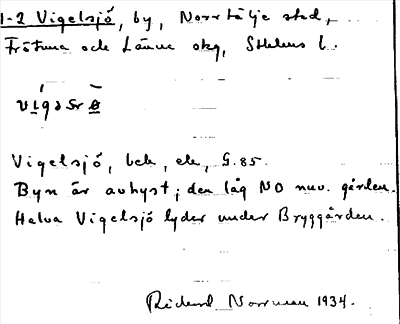 1-2 Vigelsjö, by, Norrtälje stad,
Frötuna och Länna skg, Sthlms l.
Vigelsjö, bek, ek, G.85.
Byn är avhyst; den låg NO nuv. gården.
Halva Vigelsjö lyder under Bryggården.
Richard Norrman 1934.